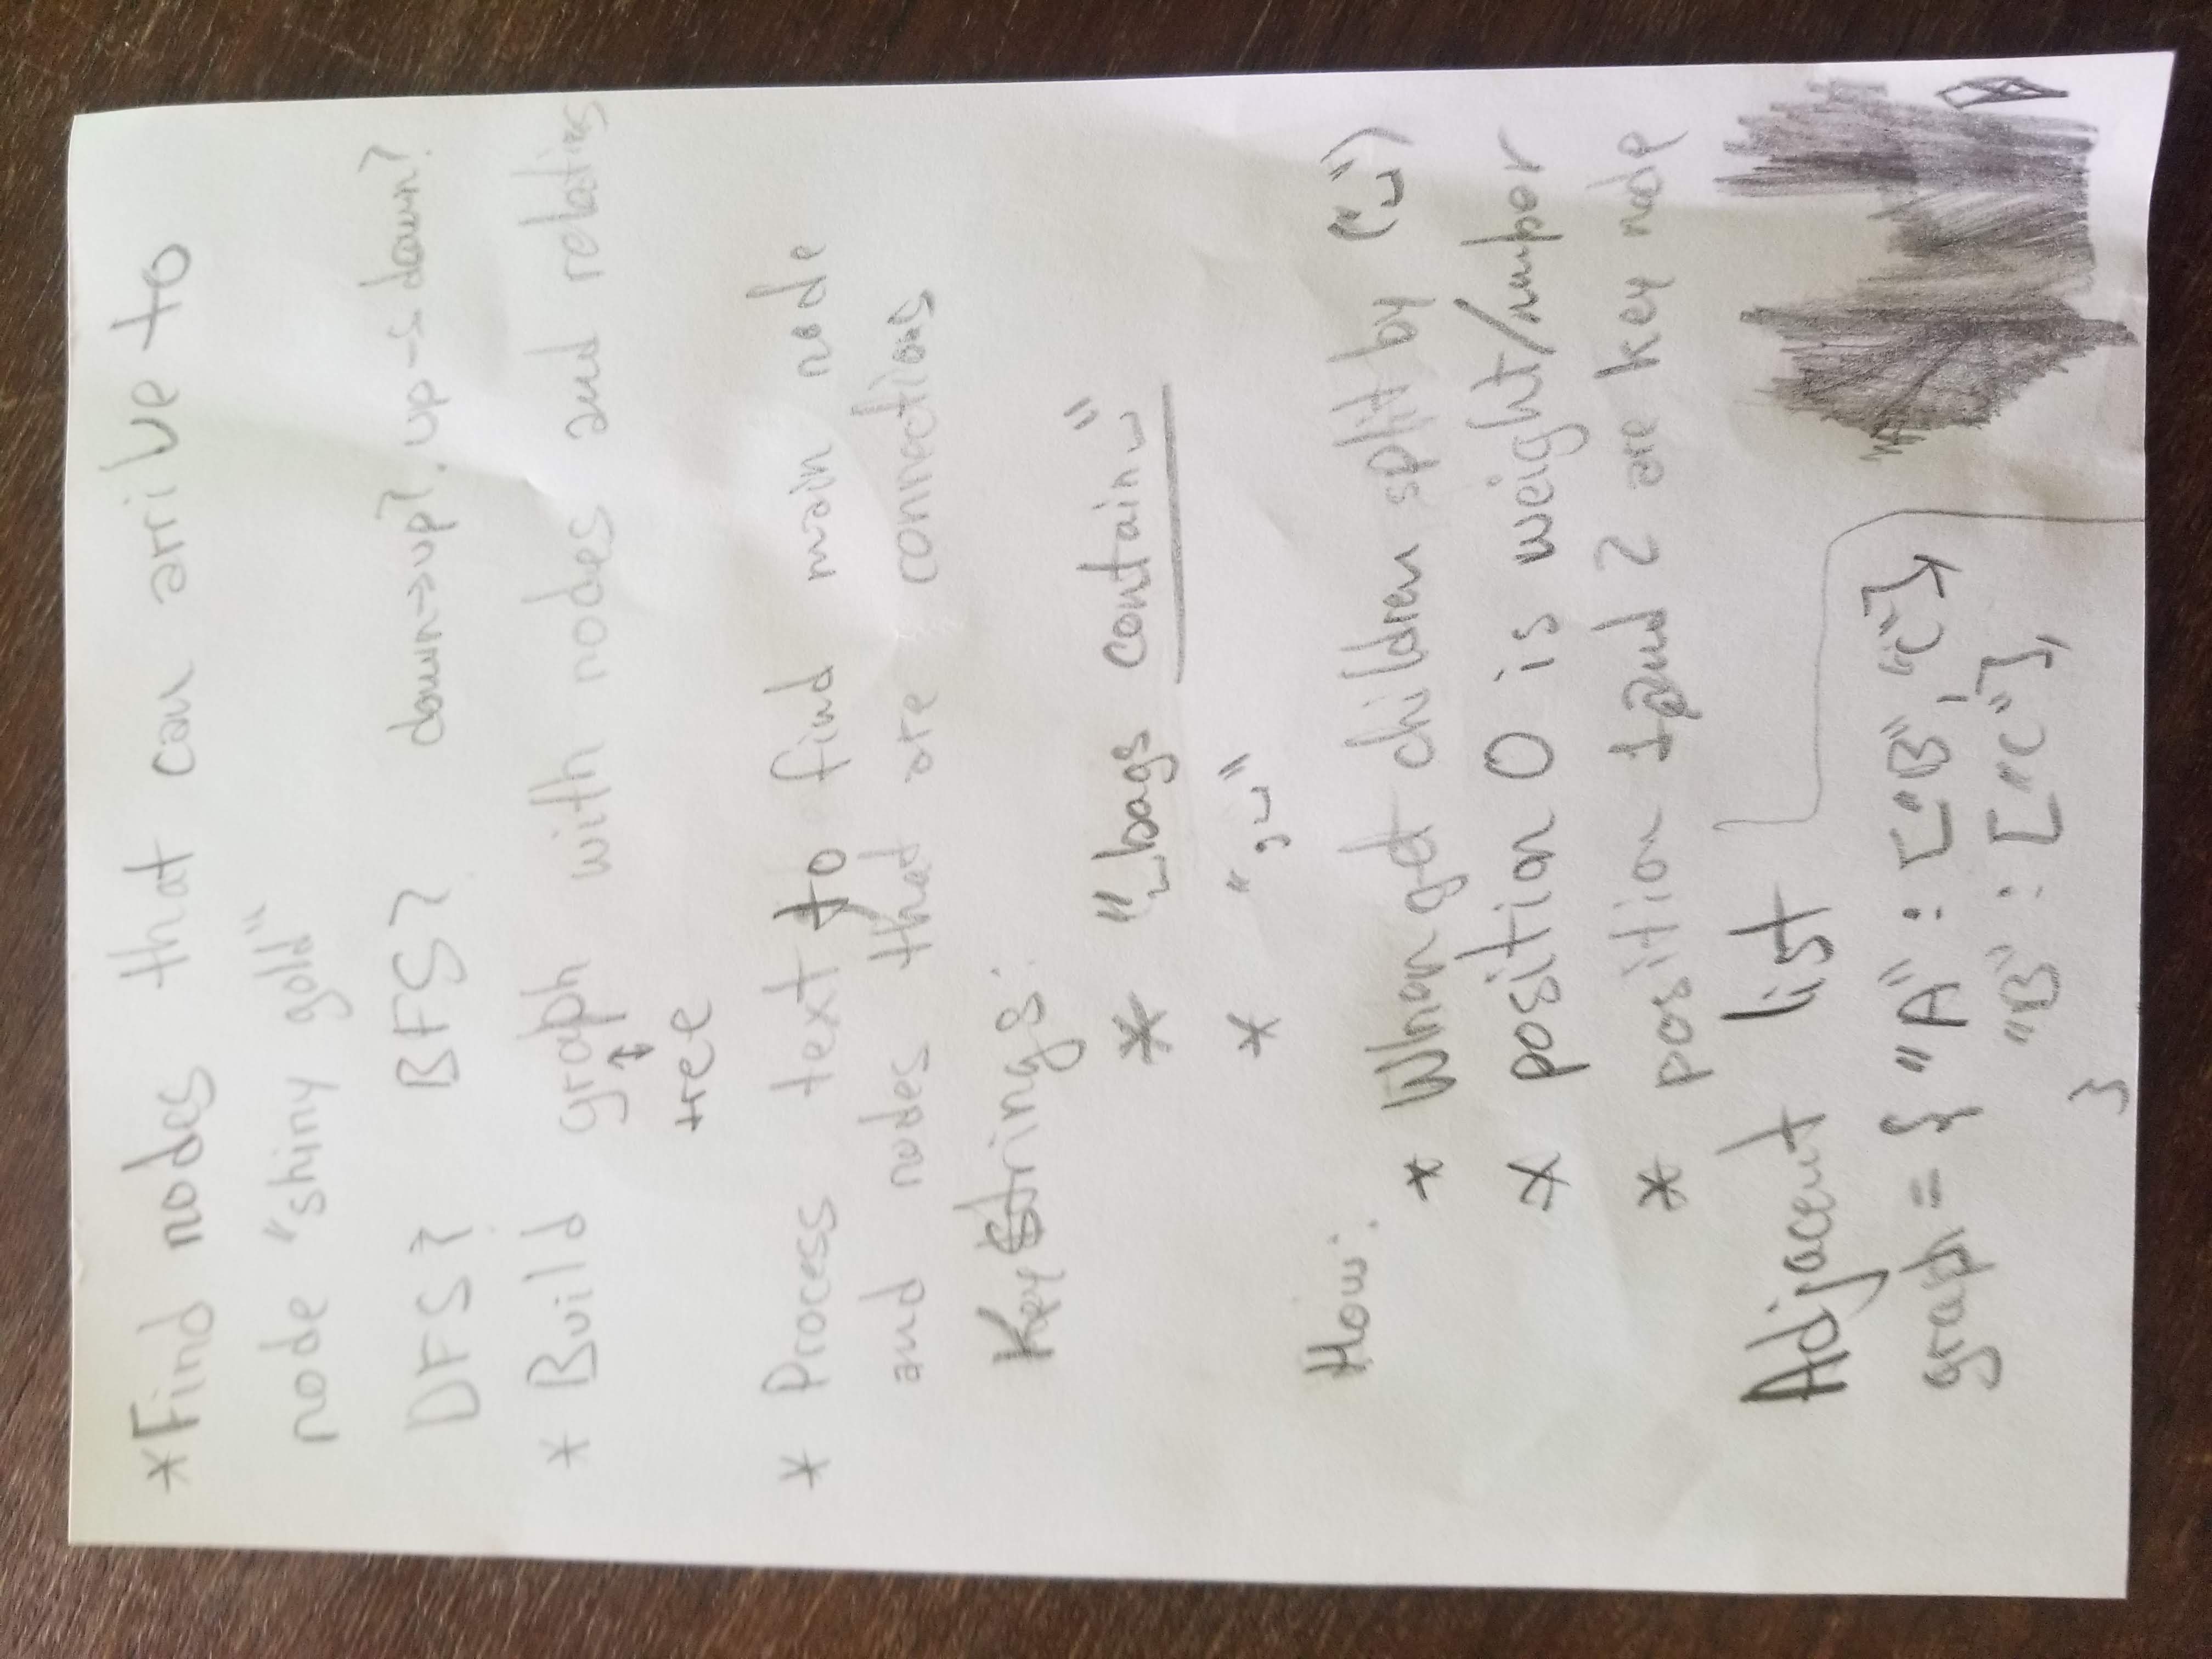 *Find nodes that can arrive to
node "shiny gold"
DFS? BFS? down→up?. up→down?
* Build graph with nodes and relations
↕
tree
* Process text to find main node
and nodes that are connections
Key Strings:
* "␣bags contain␣"
* ",␣"
How:
* When get children split by ("␣")
* position 0 is weight/number
* position 1 and 2 are key node
Adjacent list
graph = { "A" : ["B", "C"],
"B" : ["C"],
}